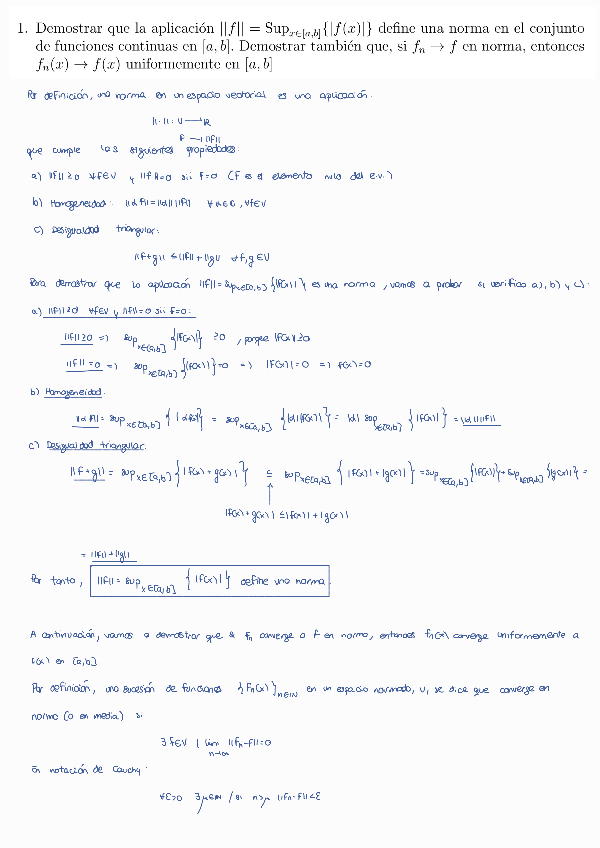 1. Demostrar que la aplicación ||f|| = Sup_{x∈[a,b]}{|f(x)|} define una norma en el conjunto
de funciones continuas en [a, b]. Demostrar también que, si f_n → f en norma, entonces
f_n(x) → f(x) uniformemente en [a, b]
Por definición, una norma en un espacio vectorial es una aplicación:
||·||: V → R
f → ||f||
que cumple las siguientes propiedades:
a) ||f|| ≥ 0 ∀f∈V y ||f|| = 0 sii f=0 (f es el elemento nulo del e.v.)
b) Homogeneidad: ||αf|| = |α| ||f|| ∀α∈C, ∀f∈V
c) Desigualdad triangular:
||f+g|| ≤ ||f|| + ||g|| ∀f,g∈V
Para demostrar que la aplicación ||f|| = Sup_{x∈[a,b]}{|f(x)|} es una norma, vamos a probar si verifica a), b) y c):
a) ||f|| ≥ 0 ∀f∈V y ||f|| = 0 sii f=0:
||f|| ≥ 0 => Sup_{x∈[a,b]}{|f(x)|} ≥ 0, porque |f(x)| ≥ 0
||f|| = 0 => Sup_{x∈[a,b]}{|f(x)|} = 0 => |f(x)| = 0 => f(x) = 0
b) Homogeneidad:
||αf|| = Sup_{x∈[a,b]}{|αf(x)|} = Sup_{x∈[a,b]}{|α||f(x)|} = |α| Sup_{x∈[a,b]}{|f(x)|} = |α| ||f||
c) Desigualdad triangular:
||f+g|| = Sup_{x∈[a,b]}{|f(x)+g(x)|} ≤ Sup_{x∈[a,b]}{|f(x)|+|g(x)|} = Sup_{x∈[a,b]}{|f(x)|} + Sup_{x∈[a,b]}{|g(x)|} =
|f(x)+g(x)| ≤ |f(x)| + |g(x)|
= ||f|| + ||g||
Por tanto, ||f|| = Sup_{x∈[a,b]}{|f(x)|} define una norma.
A continuación, vamos a demostrar que si f_n converge a f en norma, entonces f_n(x) converge uniformemente a
f(x) en [a,b]
Por definición, una sucesión de funciones {f_n(x)}_{n∈N} en un espacio normado, V, se dice que converge en
norma (o en media) si
∃ f∈V | lim_{n→∞} ||f_n - f|| = 0
En notación de Cauchy:
∀ε>0 ∃μ∈N / si n>μ ||f_n - f|| < ε